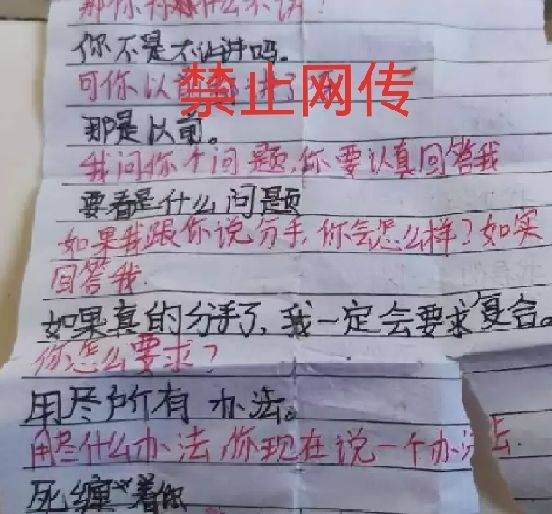 那你为什么不讲？
你不是不让讲吗。
可你以前都讲了
禁止网传
那是以前。
我问你个问题，你要认真回答我
要看是什么问题
如果我跟你说分手，你会怎么样？如实
回答我.
如果真的分手了，我一定会要求复合。
你怎么要求？
用尽所有 办法。
用尽什么办法，你现在说一个办法.
死缠着你